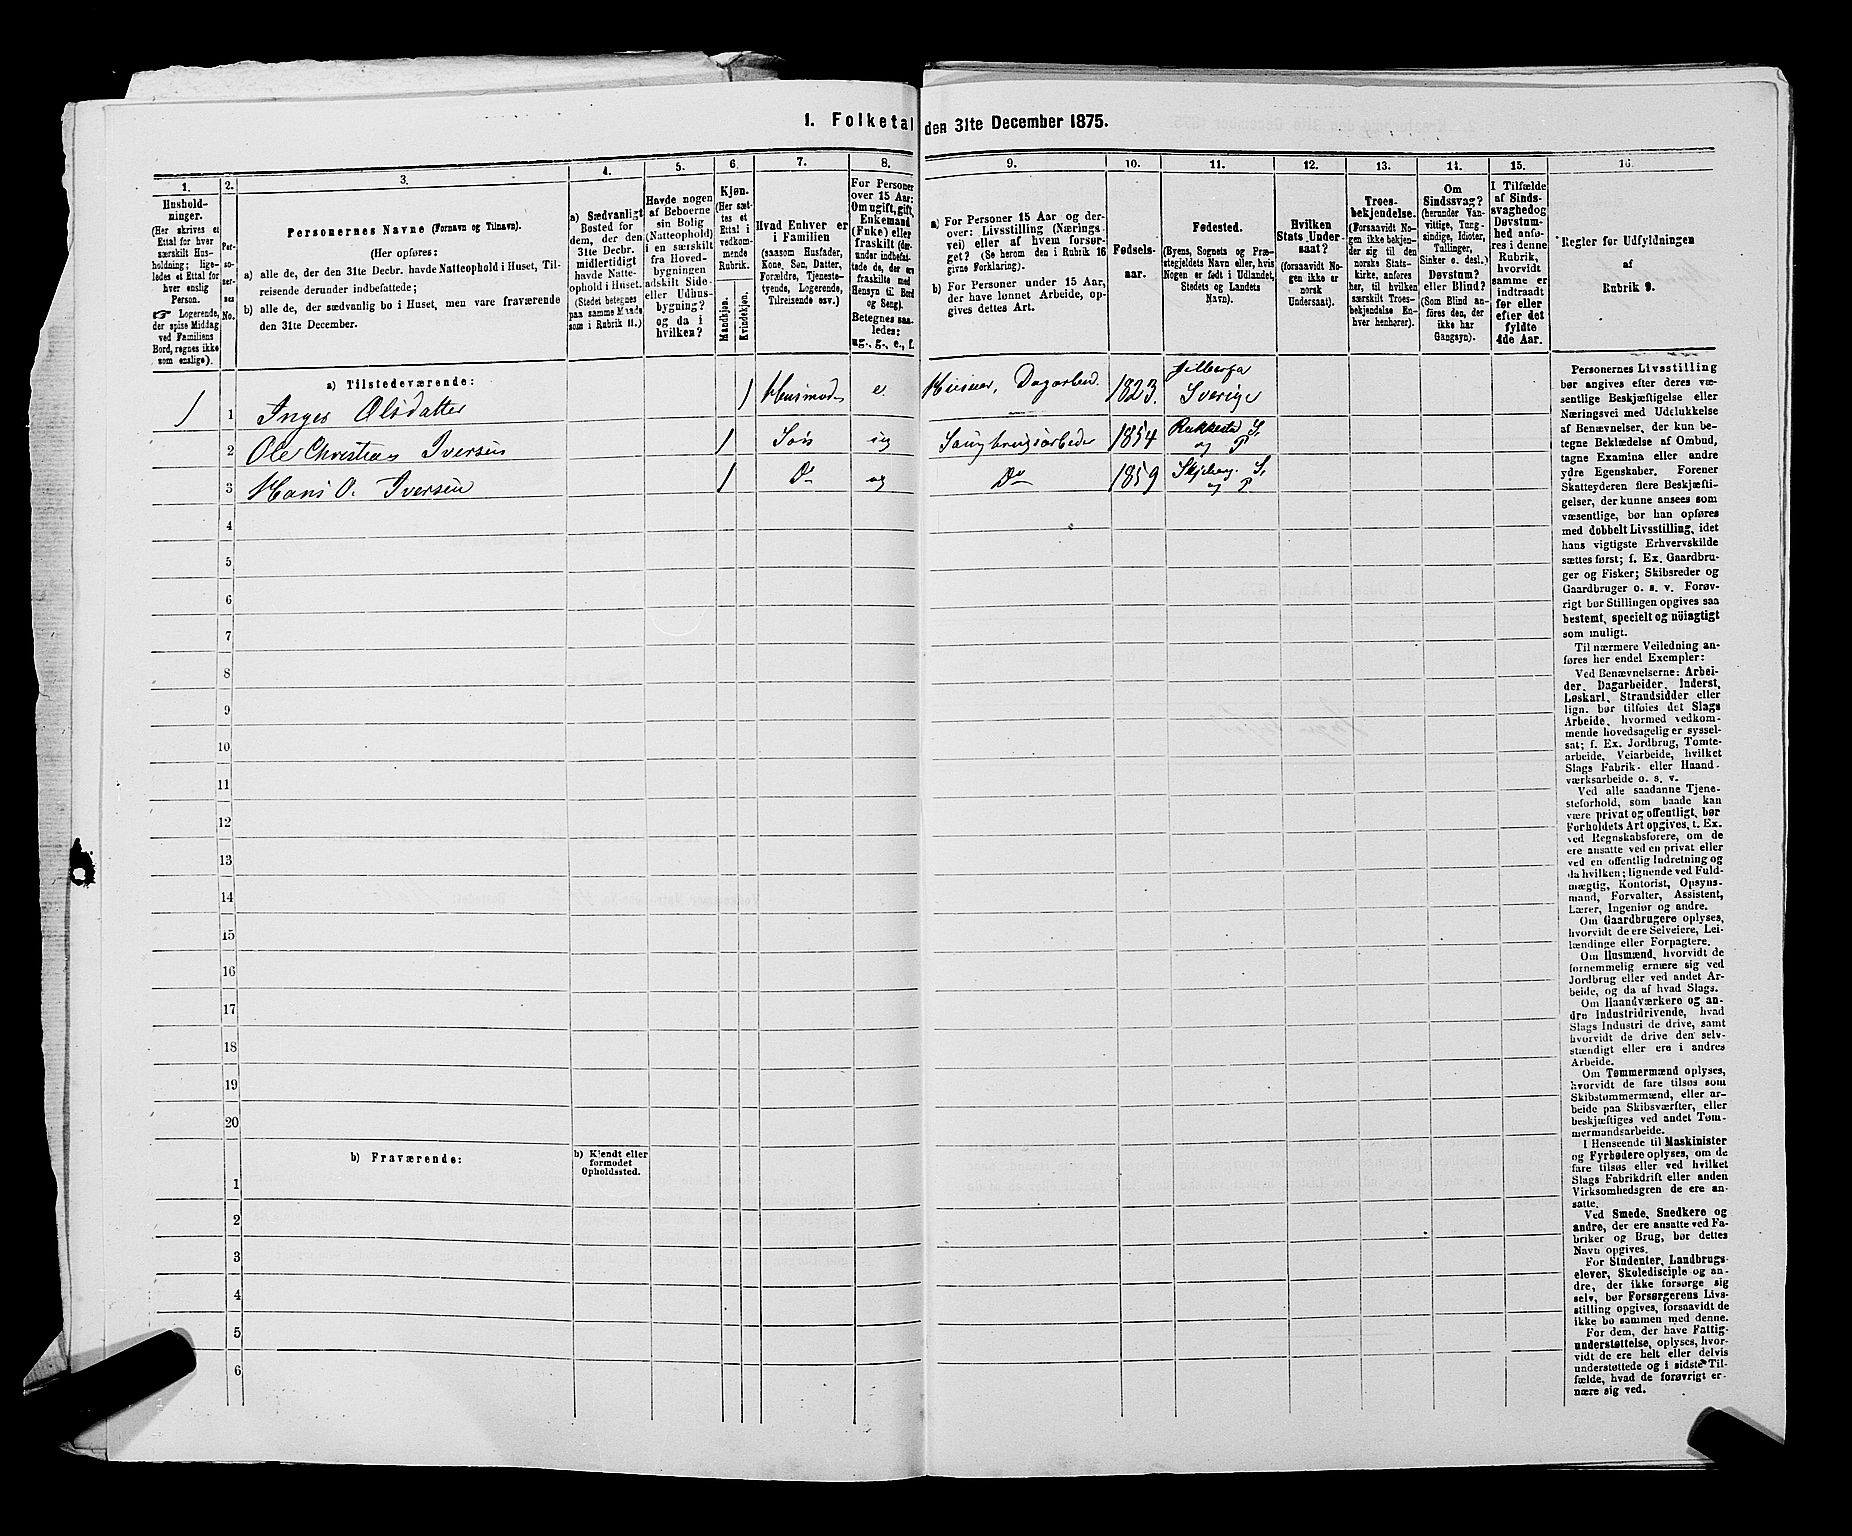 1. Folketal den 31te December 1875.
1. 2. 3. 4. 5. 6. 7. 8. 9. 10. 11. 12. 13. 14. 15. 16.
Hushold-
ninger.
(Her skrives et
Ettal for hver
særskilt Hus-
holdning; lige-
ledes et Ettal for
hver enslig
Person.
☞ Logerende,
der spise Middag
ved Familiens
Bord, regnes ikke
som enslige).
Per-
so-
ner-
nes
No.
Personernes Navne (Fornavn og Tilnavn).
(Her opføres:
a) alle de, der den 31te Decbr. havde Natteophold i Huset, Til-
reisende derunder indbefattede;
b) alle de, der sædvanlig bo i Huset, men vare fraværende
den 31te December.
a) Sædvanligt
Bosted for
dem, der den
31te Decbr.
midlertidigt
havde Natte-
ophold i Huset.
(Stedet betegnes
paa samme Maade
som i Rubrik 11.)
Havde nogen
af Beboerne
sin Bolig
(Natteophold)
i en særskilt
fra Hoved-
bygningen
adskilt Side-
eller Udhus-
bygning?
og da i
hvilken?
Kjøn.
(Her sæt-
tes et
Ettal i
vedkom-
mende
Rubrik.
Mandkjøn.
Kvindekjøn.
Hvad Enhver er
i Familien
(saasom Husfader,
Kone, Søn, Datter,
Forældre, Tjeneste-
tyende, Logerende,
Tilreisende osv.)
For Personer
over 15 Aar:
Om ugift, gift,
Enkemand
(Enke) eller
fraskilt (der-
under indbefat-
tede de, der ere
fraskilte med
Hensyn til Bord
og Seng).
Betegnes saa-
ledes:
ug., g., e., f.
a) For Personer 15 Aar og der-
over: Livsstilling (Nærings-
vei) eller af hvem forsør-
get? (Se herom den i Rubrik 16
givne Forklaring).
b) For Personer under 15 Aar,
der have lønnet Arbeide, op-
gives dettes Art.
Fødsels-
aar.
Fødested.
(Byens, Sognets og Præ-
stegjeldets Navn eller, hvis
Nogen er født i Udlandet,
Stedets og Landets
Navn).
Hvilken
Stats Under-
saat?
(forsaavidt No-
gen ikke er
norsk
Undersaat).
Troes-
bekjendelse.
(Forsaavidt No-
gen ikke bekjen-
der sig til den
norske Stats-
kirke, anføres
her, til hvilken
særskilt Troes-
bekjendelse En-
hver henhører).
Om
Sindssvag?
(herunder Van-
vittige, Tung-
sindige, Idioter,
Tullinger,
Sinker o. desl.)
Døvstum?
eller Blind?
(Som Blind an-
føres den, der
ikke har
Gangsyn).
I Tilfælde
af Sinds-
svaghed og
Døvstum-
hed anfø-
res i denne
Rubrik,
hvorvidt
samme er
indtraadt
før eller
efter det
fyldte
4de Aar.
Regler for Udfyldningen
af
Rubrik 9.
a) Tilstedeværende:
1 1 Inger Olsdatter 1 Husmod. e. Dagarbeid. 1823. Sverige
2 Ole Christian Iversen 1 Søn ug 1854 Rakkestad S. og P
3 Hans O. Iversen 1 Do ug Do 1859 Skjeberg S. og P
4
5
6
7
8
9
10
11
12
13
14
15
16
17
18
19
20
b) Fraværende:
b) Kjendt eller
formodet
Opholdssted.
1
2
3
4
5
6
Personernes Livsstilling
bør angives efter deres væ-
sentlige Beskjæftigelse eller
Næringsvei med Udelukkelse
af Benævnelser, der kun be-
tegne Beklædelse af Ombud,
tagne Examina eller andre
ydre Egenskaber. Forener
Skatteyderen flere Beskjæfti-
gelser, der kunne ansees som
væsentlige, bør han opføres
med dobbelt Livsstilling, idet
hans vigtigste Erhvervskilde
sættes først; f. Ex. Gaardbru-
ger og Fisker; Skibsreder og
Gaardbruger o. s. v. Forøv-
rigt bør Stillingen opgives saa
bestemt, specielt og nøiagtigt
som muligt.
Til nærmere Veiledning an-
føres her endel Exempler:
Ved Benævnelserne: Arbei-
der, Dagarbeider, Inderst,
Løskarl, Strandsidder eller
lign. bør tilføies det Slags
Arbeide, hvormed vedkom-
mende hovedsagelig er syssel-
sat; f. Ex. Jordbrug, Tomte-
arbeide, Veiarbeide, hvilket
Slags Fabrik- eller Haand-
værksarbeide o. s. v.
Ved alle saadanne Tjene-
steforhold, som baade kan
være privat og offentligt, bør
Forholdets Art opgives, t. Ex.
ved Regnskabsførere, om de
ere ansatte ved en privat eller
ved en offentlig Indretning og
da hvilken; lignende ved Fuld-
mægtig, Kontorist, Opsyns-
mand, Forvalter, Assistent,
Lærer, Ingeniør og andre.
Om Gaardbrugere oplyses,
hvorvidt de ere Selveiere, Lei-
lændinge eller Forpagtere.
Om Husmænd, hvorvidt de
fornemmelig ernære sig ved
Jordbrug eller ved andet Ar-
beide, og da af hvad Slags.
Om Haandværkere og an-
dre Industridrivende, hvad
Slags Industri de drive, samt
hvorvidt de drive den selv-
stændigt eller ere i andres
Arbeide.
Om Tømmermænd oplyses,
hvorvidt de fare tilsøs som
Skibstømmermænd, eller ar-
beide paa Skibsværfter, eller
beskjæftiges ved andet Tøm-
mermandsarbeide.
I Henseende til Maskinister
og Fyrbødere oplyses, om de
fare tilsøs eller ved hvilket
Slags Fabrikdrift eller anden
Virksomhedsgren de ere an-
satte.
Ved Smede, Snedkere og
andre, der ere ansatte ved Fa-
briker og Brug, bør dettes
Navn opgives.
For Studenter, Landbrugs-
elever, Skoledisciple og an-
dre, der ikke forsørge sig
selv, bør Forsørgerens Livs-
stilling opgives, forsaavidt de
ikke bo sammen med denne.
For dem, der have Fattig-
understøttelse, oplyses, hvor-
vidt de ere helt eller delvis
understøttede og i sidste Til-
fælde, hvad de forøvrigt er-
nære sig ved.